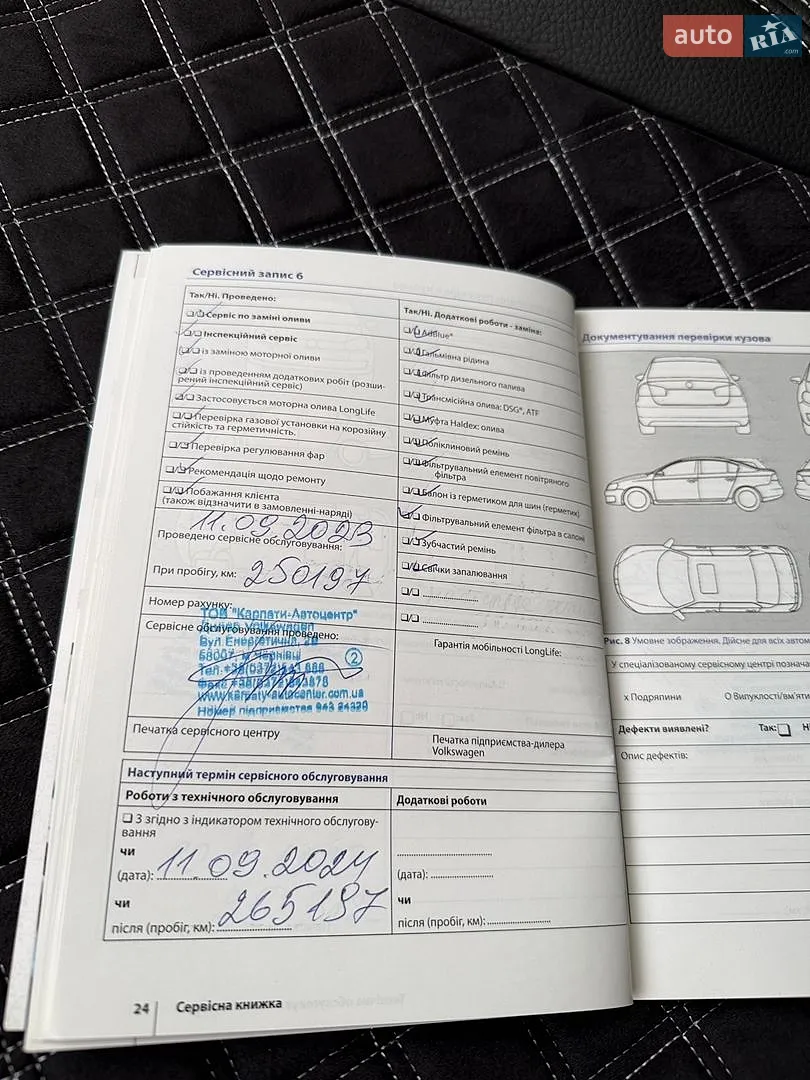 auto RIA.com
Сервісний запис 6
Так/Ні. Проведено:
Сервіс по заміні оливи
Інспекційний сервіс
із заміною моторної оливи
із проведенням додаткових робіт (розши-
рений інспекційний сервіс)
Застосовується моторна олива LongLife
Перевірка газової установки на корозійну
стійкість та герметичність.
Перевірка регулювання фар
Рекомендація щодо ремонту
Побажання клієнта
(також відзначити в замовленні-наряді)
11.09.2023
Проведено сервісне обслуговування:
При пробігу, км: 250197
Номер рахунку:
ТОВ "Карпати-Автоцентр"
Сервісне обслуговування проведено:
Вул Енергетична
58007, м Чернівці
2
www.karpaty-autocenter.com.ua
Номер підприємства 943 24329
Печатка сервісного центру
Так/Ні. Додаткові роботи - заміна:
AdBlue®
Гальмівна рідина
Фільтр дизельного палива
Трансмісійна олива: DSG®, ATF
Муфта Haldex: олива
Поліклиновий ремінь
Фільтрувальний елемент повітряного
фільтра
Балон із герметиком для шин (герметик)
Фільтрувальний елемент фільтра в салоні
Зубчастий ремінь
Свічки запалювання
Гарантія мобільності LongLife:
Печатка підприємства-дилера
Volkswagen
Наступний термін сервісного обслуговування
Роботи з технічного обслуговування
З згідно з індикатором технічного обслугову-
вання
чи
(дата): 11.09.2024
чи
після (пробіг, км): 265197
Додаткові роботи
(дата):
чи
після (пробіг, км):
24
Сервісна книжка
Документування перевірки кузова
Рис. 8 Умовне зображення. Дійсне для всіх
У спеціалізованому сервісному центрі
x Подряпини
O Випуклості/
Дефекти виявлені?
Так:
Опис дефектів: